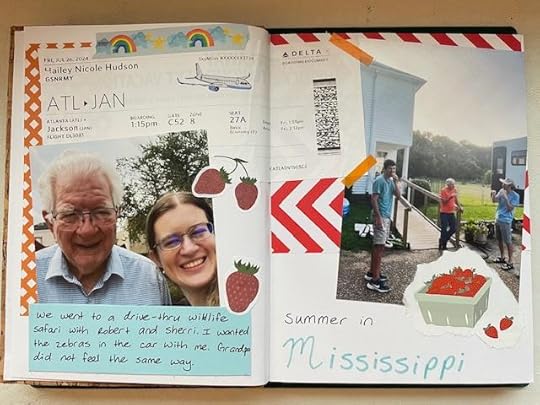 FRI, JUL 26, 2024
Hailey Nicole Hudson
GSNRMY
ATL▸JAN
ATLANTA (ATL) ▸
Jackson (JAN)
BOARDING
1:15pm
GATE
C52
ZONE
8
SEAT
27A
Basic
we went to a drive-thru wildlife
safari with Robert and Sherri. I wanted
the zebras in the car with me. Grandpa
did not feel the same way.
DELTA
BOARDING DOCUMENT
summer in
Mississippi